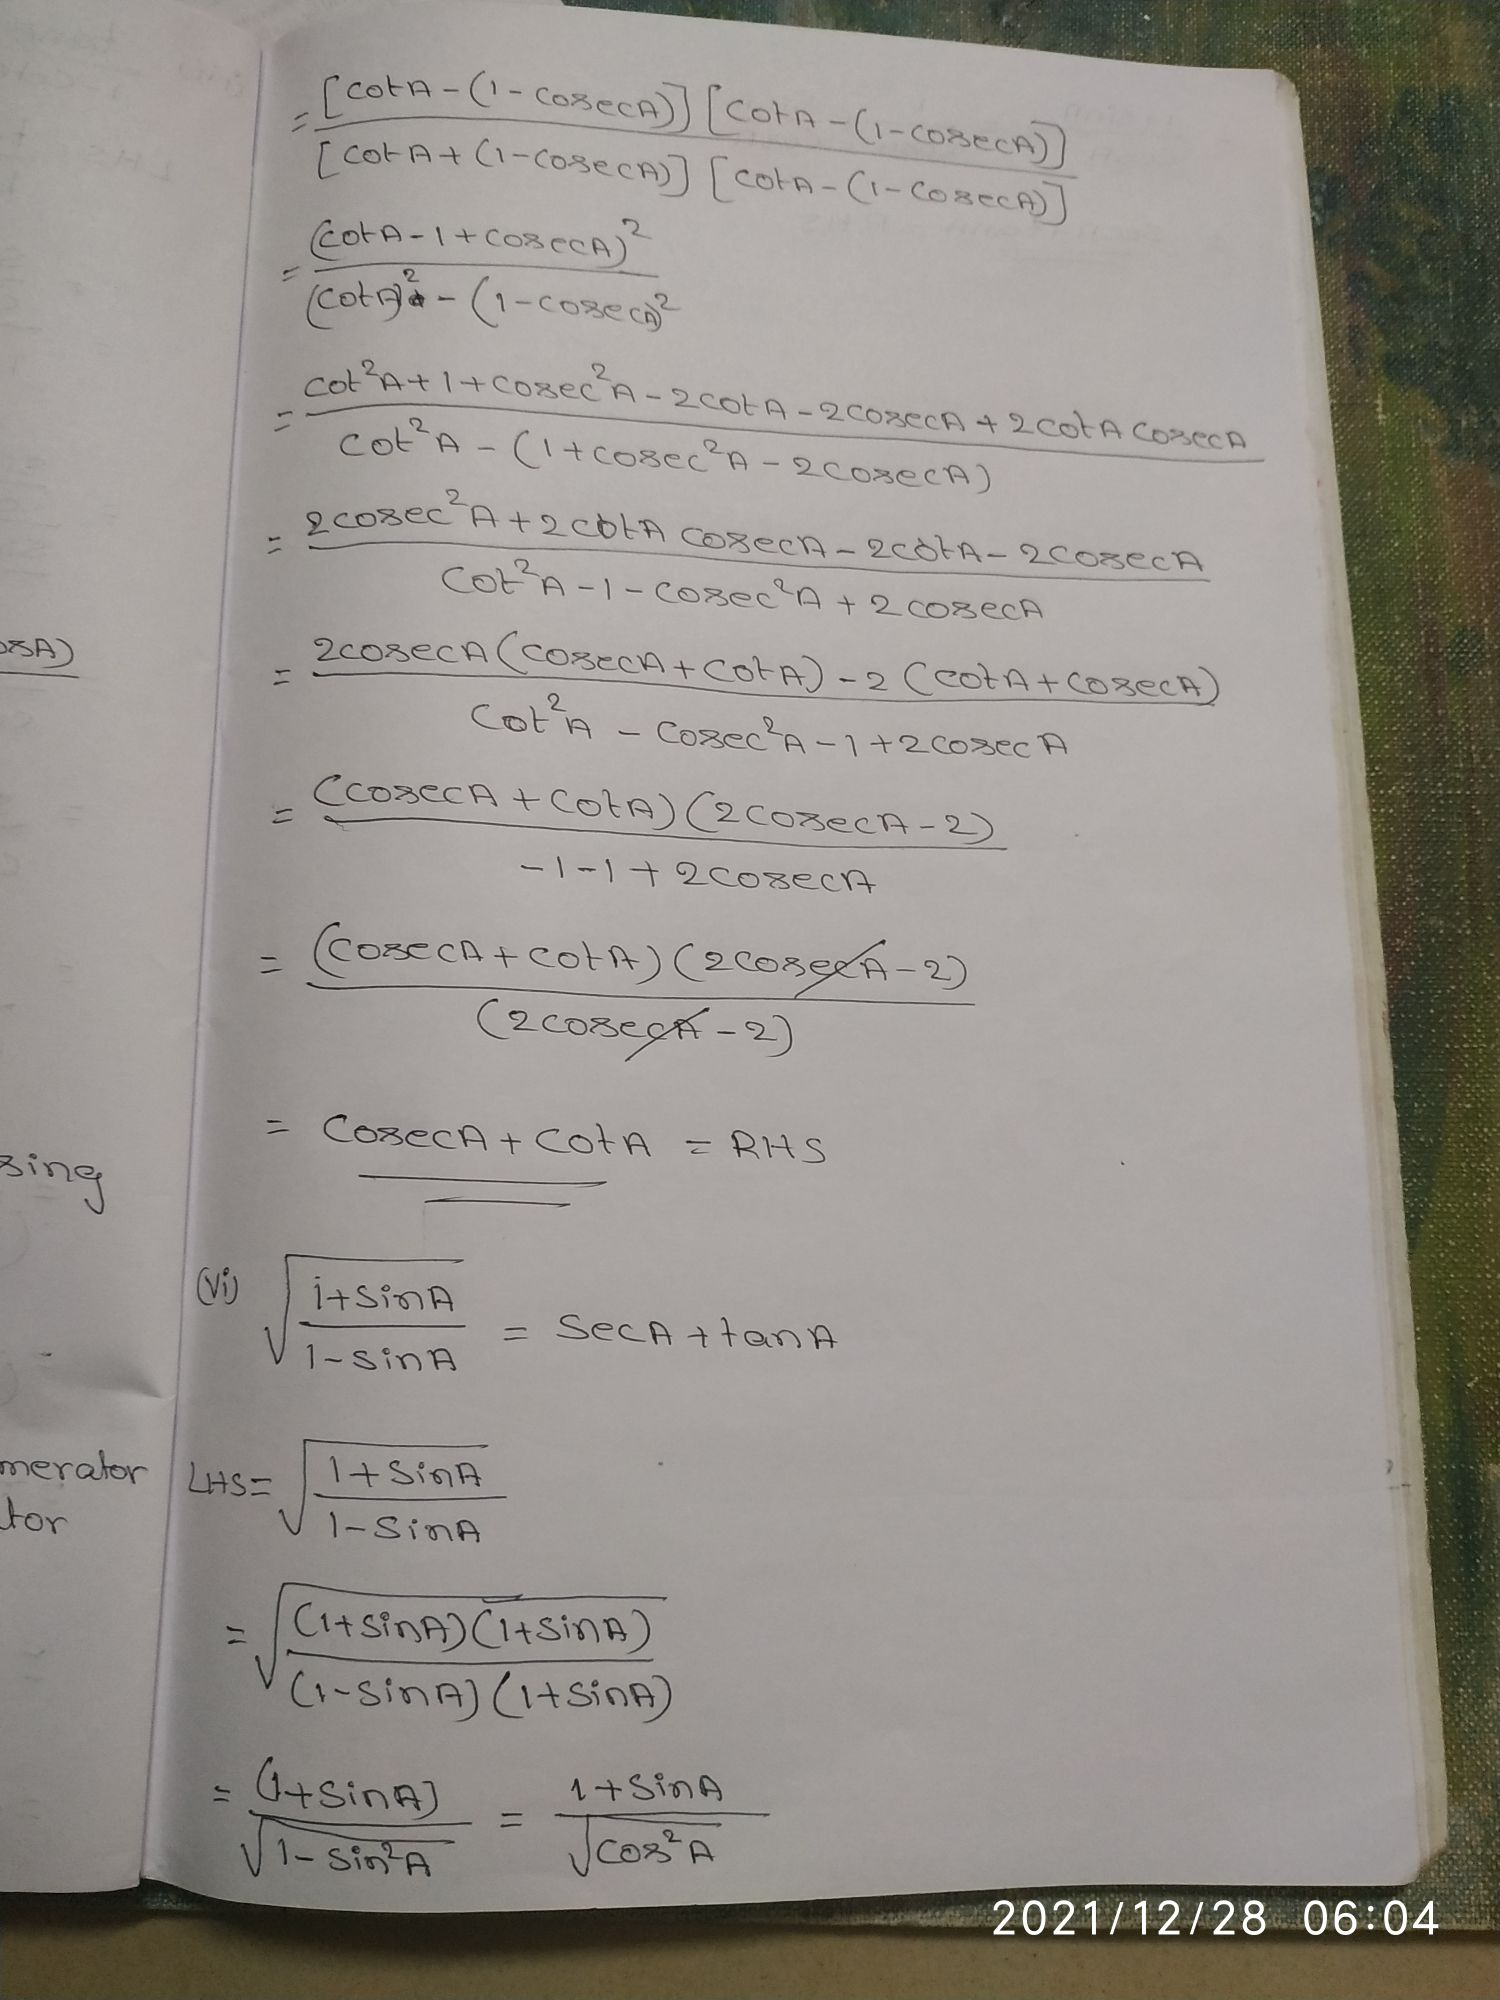 = [cotA-(1-cosecA)] [cotA-(1-cosecA)] / [cotA+(1-cosecA)] [cotA-(1-cosecA)]
= (cotA-1+cosecA)² / (cotA)² - (1-cosecA)²
= cot²A+1+cosec²A-2cotA-2cosecA+2cotA cosecA / cot²A-(1+cosec²A-2cosecA)
= 2cosec²A+2cotA cosecA-2cotA-2cosecA / cot²A-1-cosec²A+2cosecA
= 2cosecA(cosecA+cotA)-2(cotA+cosecA) / cot²A-cosec²A-1+2cosecA
= (cosecA+cotA)(2cosecA-2) / -1-1+2cosecA
= (cosecA+cotA)(2cosecA-2) / (2cosecA-2)
= cosecA+cotA = RHS
(vi) √(1+sinA / 1-sinA) = secA+tanA
LHS = √(1+sinA / 1-sinA)
= √((1+sinA)(1+sinA) / (1-sinA)(1+sinA))
= (1+sinA) / √1-sin²A = 1+sinA / √cos²A
sing
merator
tor
2021/12/28 06:04